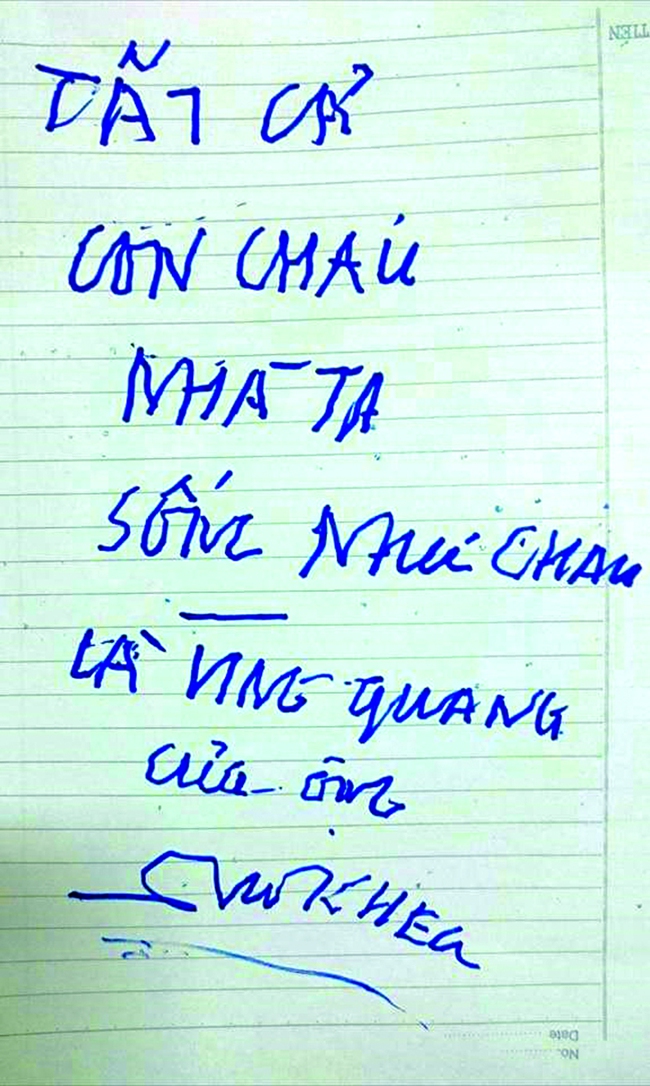 TẤT CẢ
CON CHÁU
NHÀ TA
SỐNG NHƯ CHÁU
LÀ VING QUANG
CỦA ÔNG
Date
No.